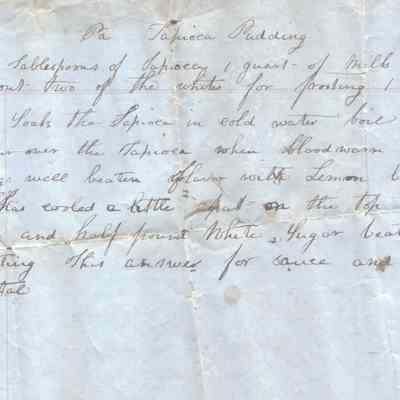 Pa Tapioca Pudding
Tablespoons of Tapiocca 1 quart of Milk
out two of the whites for frosting 1
Soak the Tapioca in cold water boil
over the Tapioca when bloodwarm
well beaten flavor with Lemon
has cooled a little spat on the top
and half pound White Sugar beat
ting This answers for sauce and